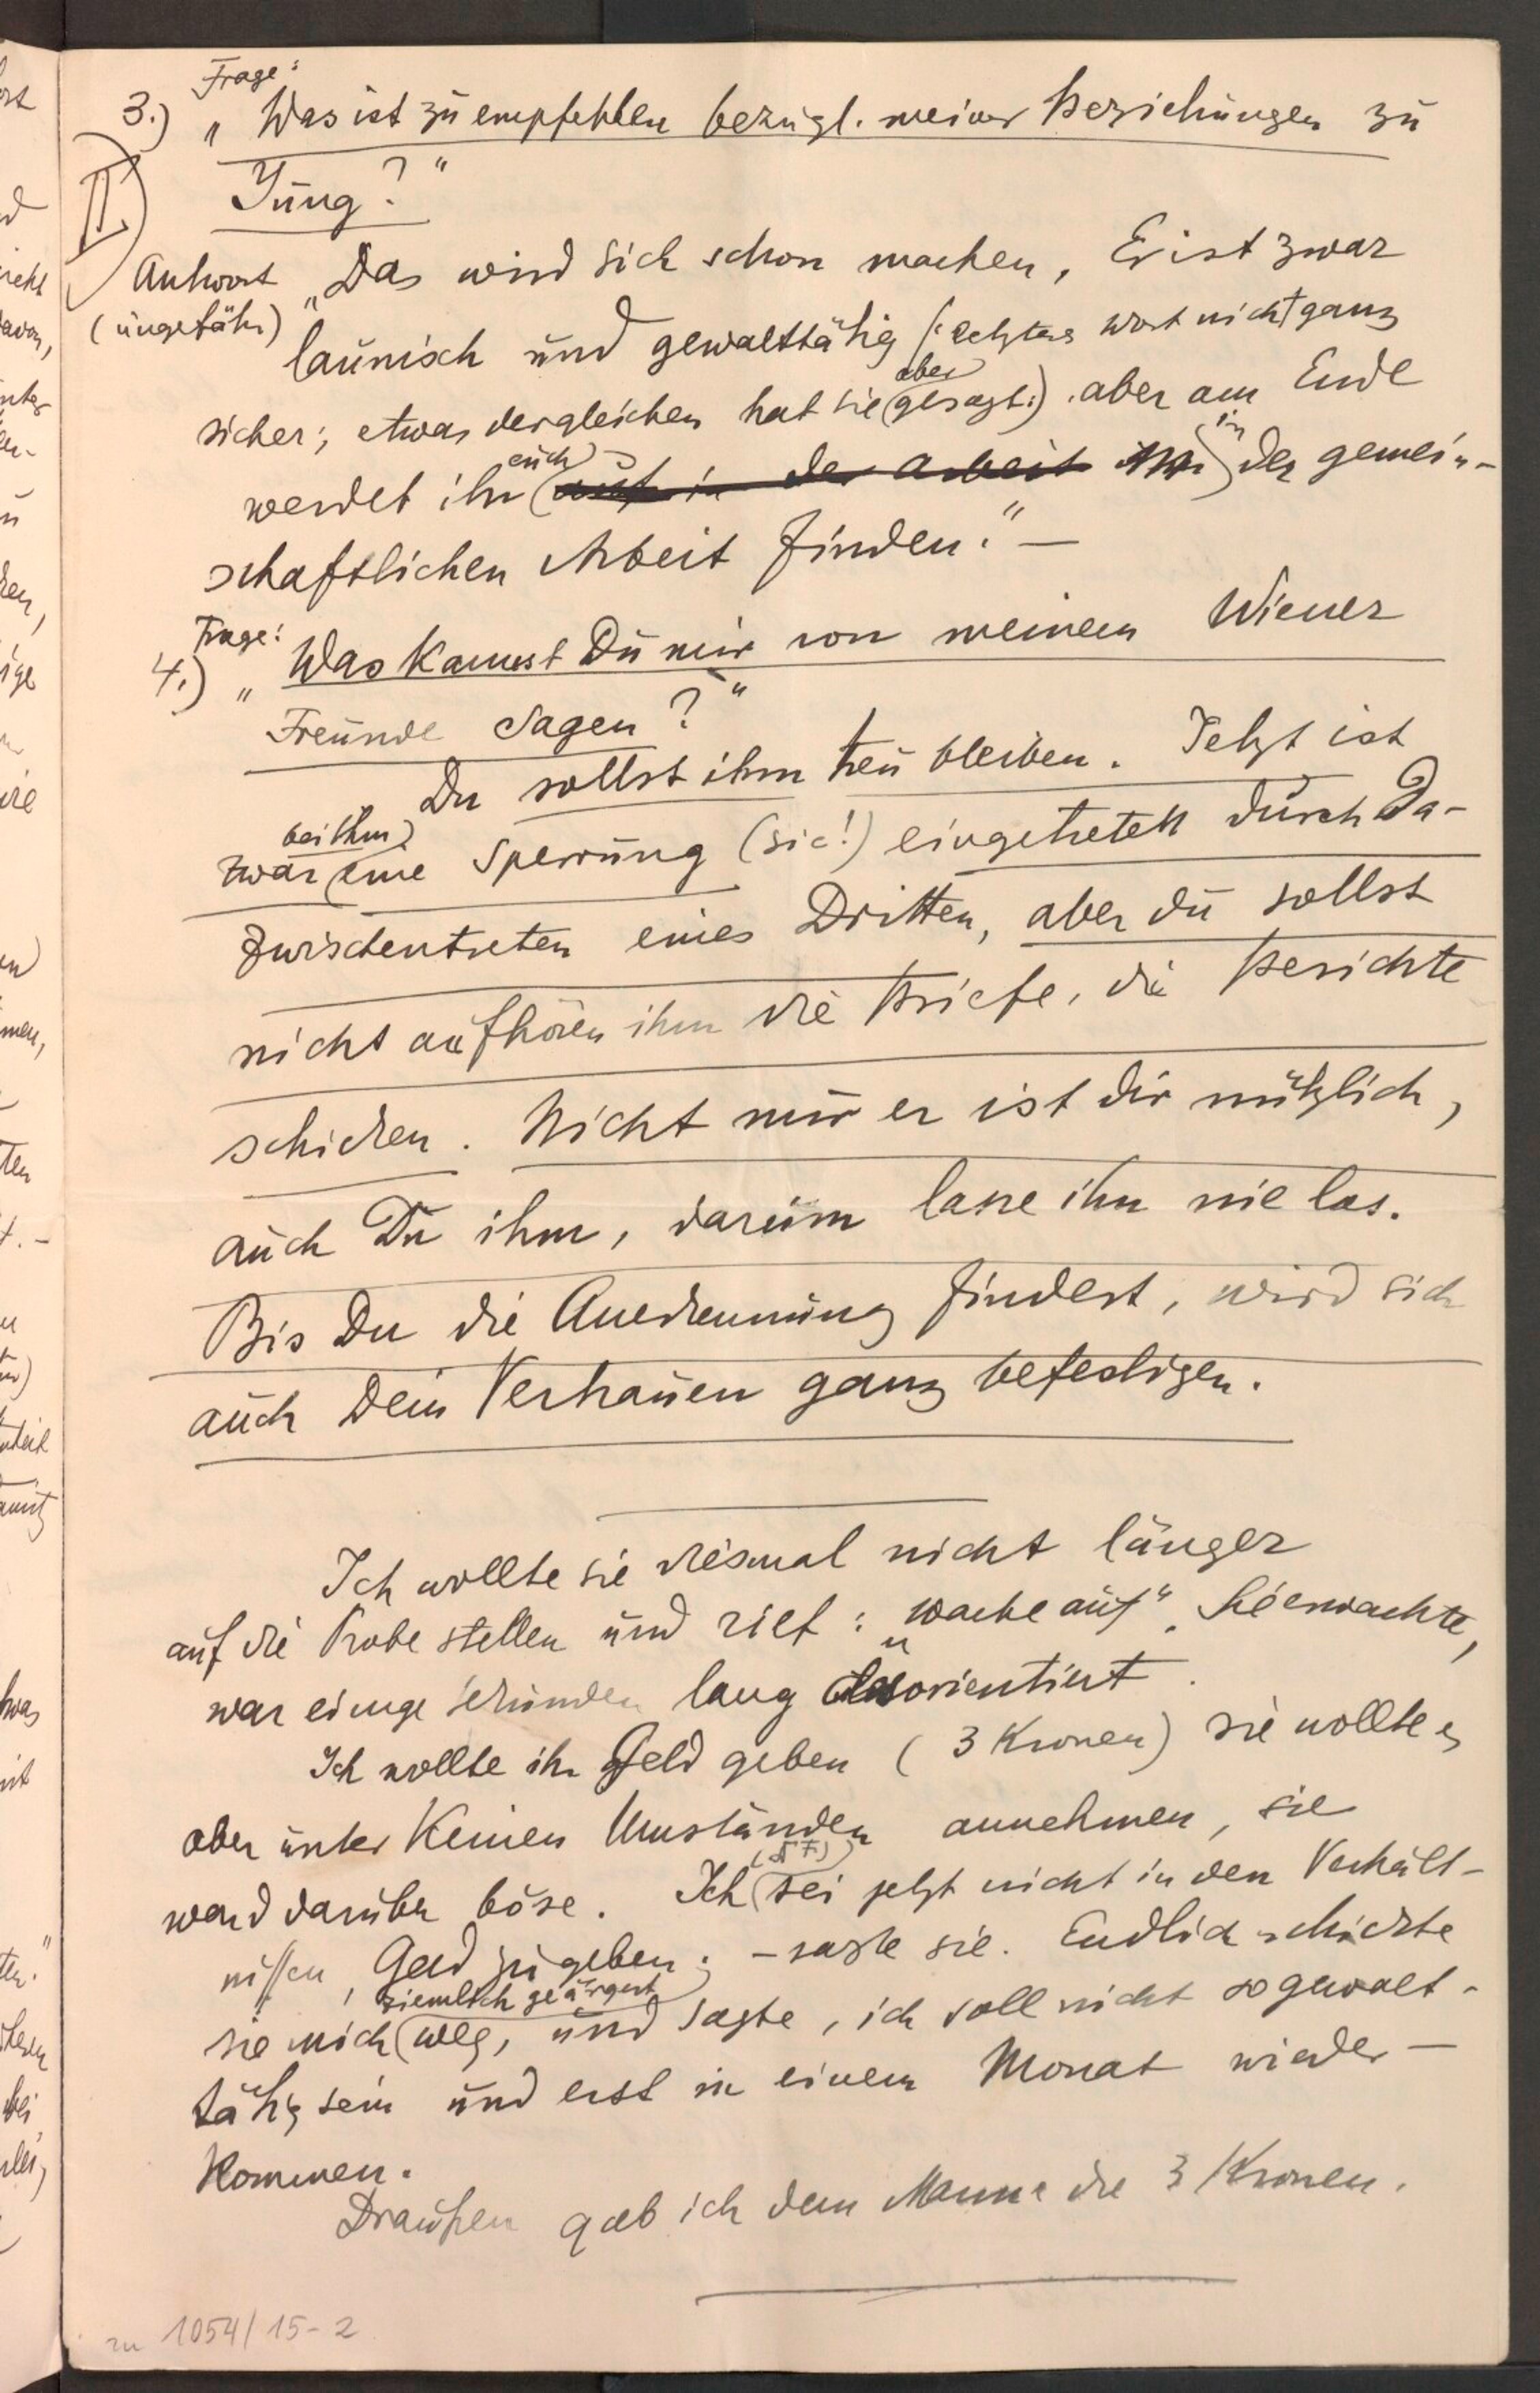 Frage:
3.) „Was ist zu empfehlen bezügl. meiner Beziehungen zu
II.
Jung?“
Antwort „Das wird sich schon machen, Er ist zwar
(ungefähr) launisch und gewalttätig (: letztes Wort nicht ganz
sicher; etwas dergleichen hat sie aber gesagt:). aber am Ende
werdet ihr euch auch in der Arbeit in der gemein-
schaftlichen Arbeit finden.“ —
Frage:
4.) „Was kannst Du mir von meinem Wiener
Freunde sagen?“
Du sollst ihm treu bleiben. Jetzt ist
zwar bei ihm eine Sperrung (sic!) eingetreten durch Da-
zwischentreten eines Dritten, aber du sollst
nicht aufhören ihm die Briefe, die Berichte
schicken. Nicht nur er ist dir nützlich,
auch Du ihm, darum lasse ihn nie los.
Bis Du die Anerkennung findest, wird sich
auch Dein Vertrauen ganz befestigen.
Ich wollte sie diesmal nicht länger
auf die Probe stellen und rief: „wache auf“. Sie erwachte,
war einige Sekunden lang desorientiert.
Ich wollte ihr Geld geben (3 Kronen) sie wollte es
aber unter keinen Umständen annehmen, sie
ward darüber böse. Ich sei jetzt nicht in den Verhält-
nissen, Geld zu geben; – sagte sie. Endlich schickte
sie mich ziemlich geärgert weg, und sagte, ich soll nicht so gewalt-
tätig sein und erst in einem Monat wieder-
kommen.
Draußen gab ich dem Manne die 3 Kronen.
zu 1054/15-2